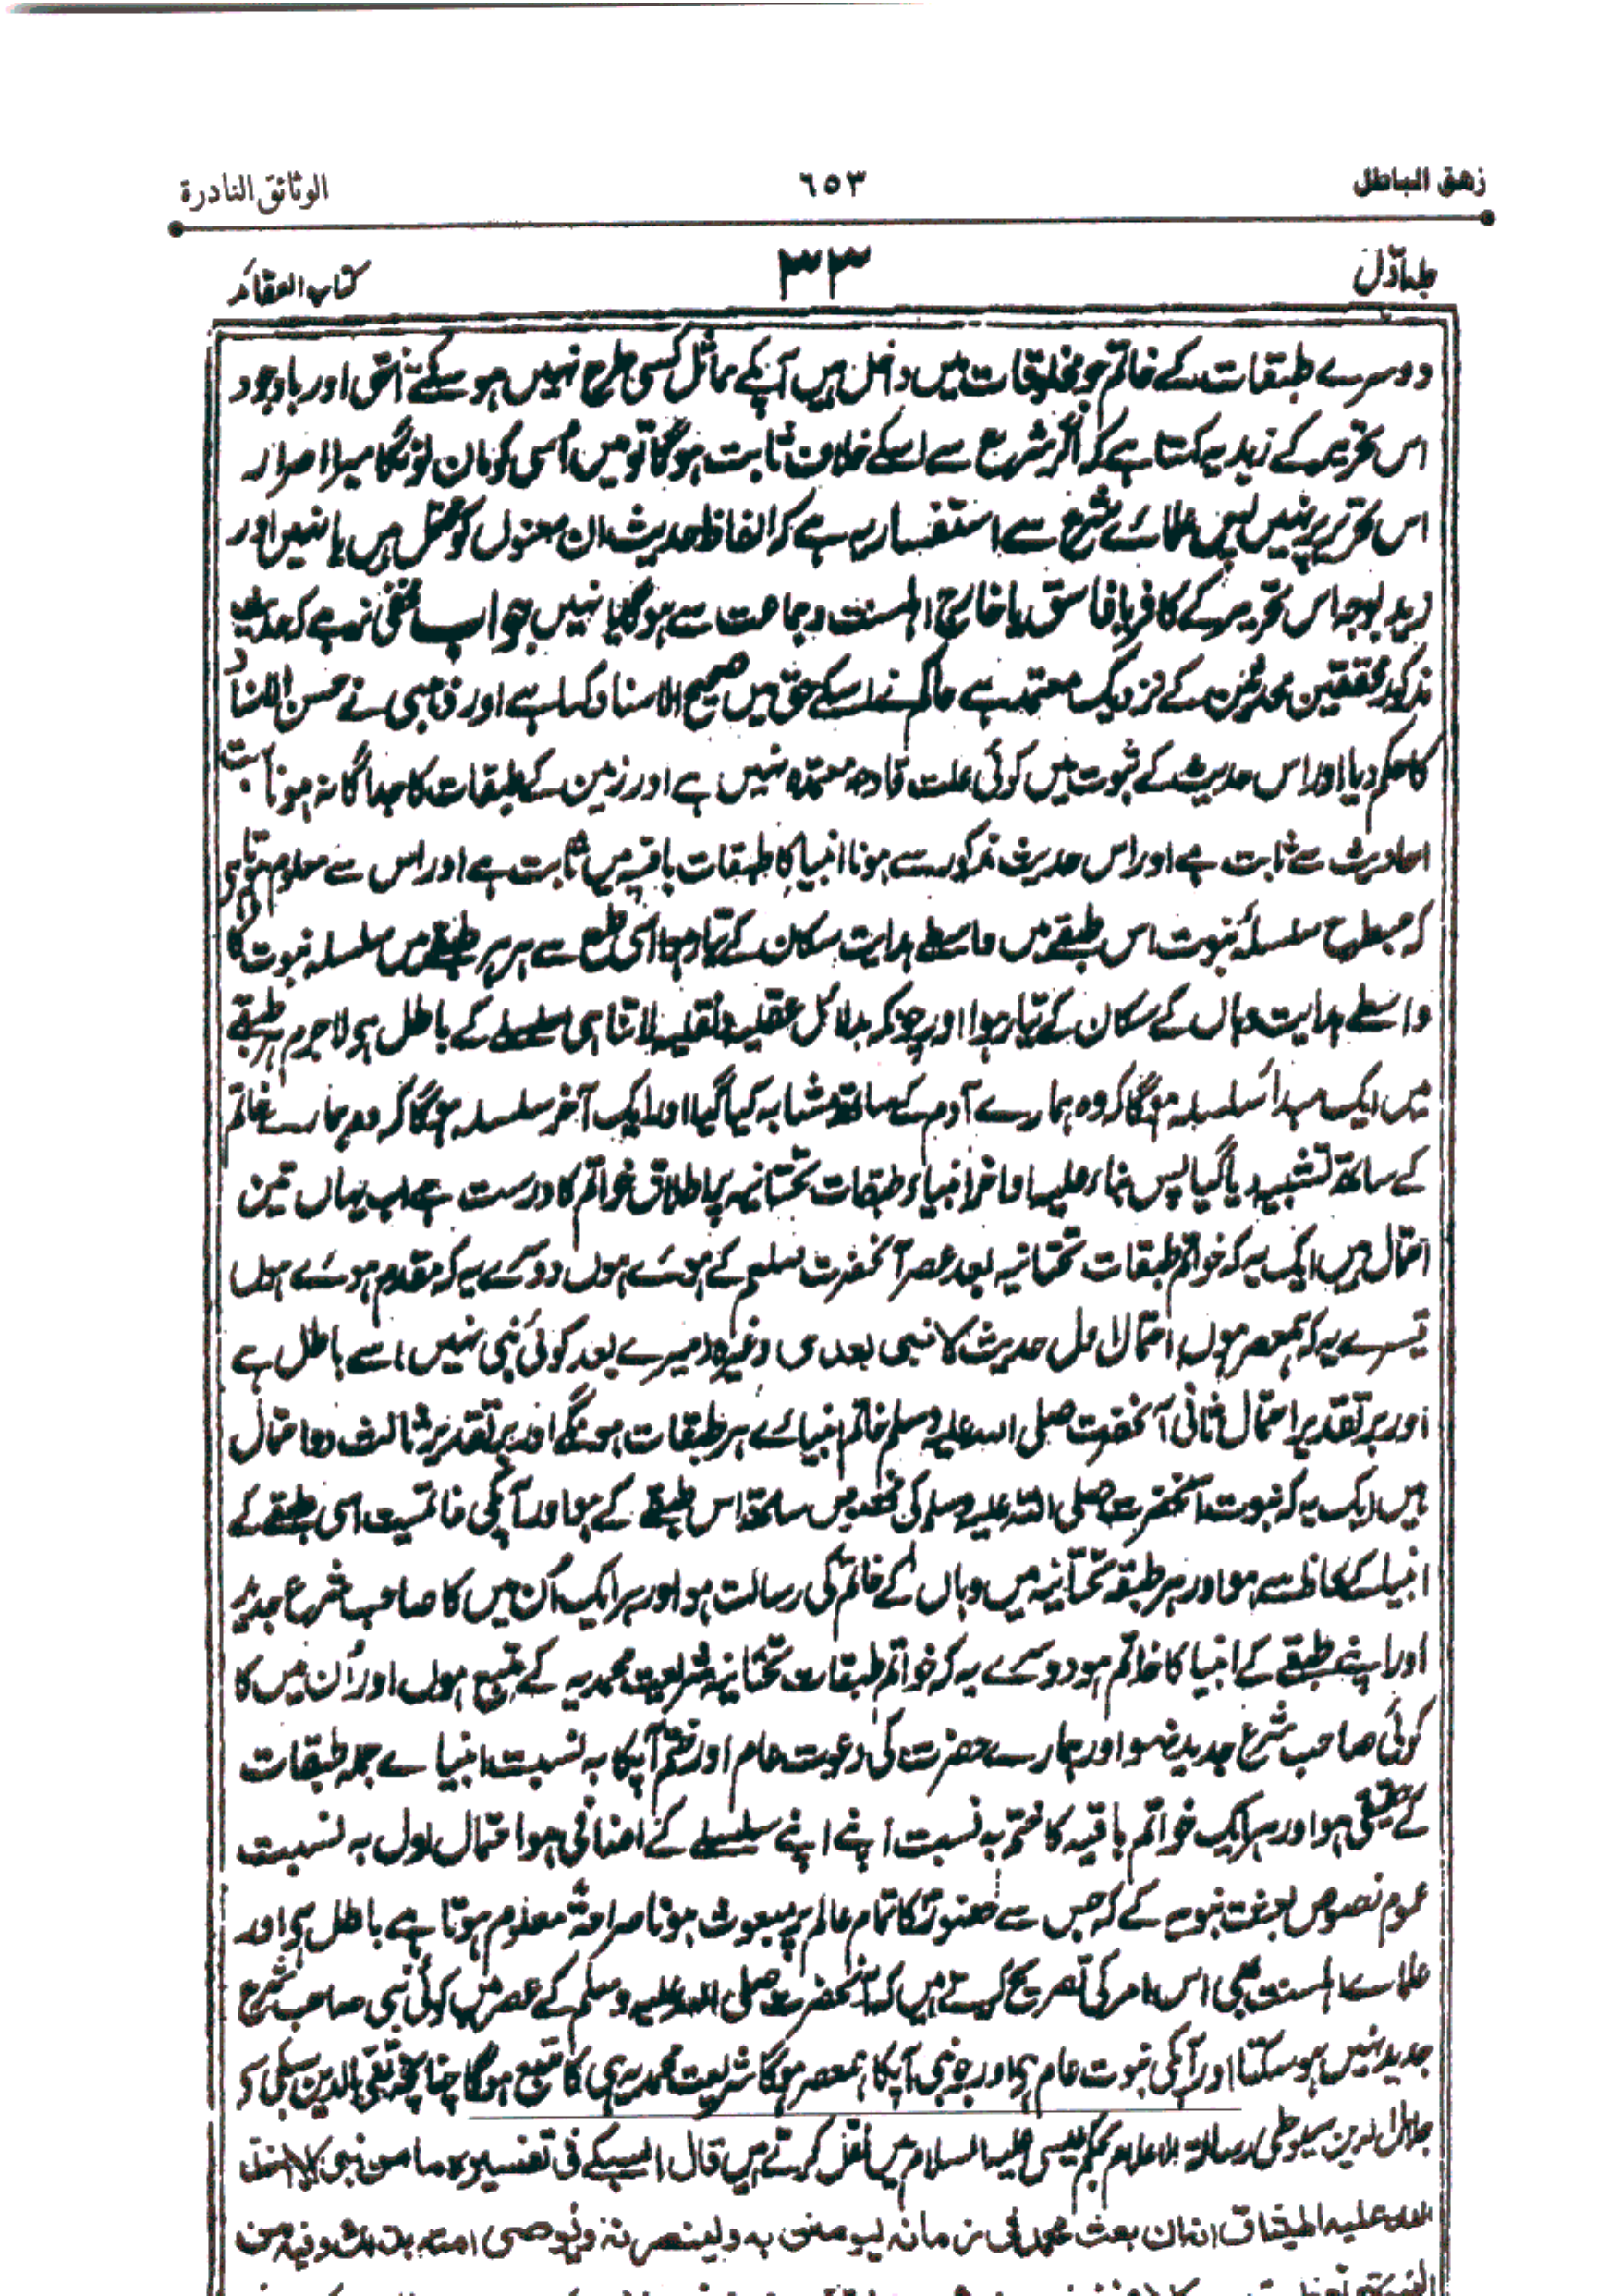 زهق الباطل ٦٥٣ الوثائق النادرة
جلد اوّل ٣٣ کتاب العقائد
دوسرے طبقات کے خاتم جو مخلوقات میں داخل ہیں آپکے مماثل کسی طرح نہیں ہو سکتے انتہی اور باوجود
اس تحریر کے زید یہ کہتا ہے کہ اگر شرع سے اسکے خلاف ثابت ہوگا تو میں اُسی کو مان لونگا میرا اصرار
اس تحریر پر نہیں پس علمائے شرع سے استفسار یہ ہے کہ الفاظ حدیث ان معنوں کو محتمل ہیں یا نہیں اور
زید بوجہ اس تحریر کے کافر یا فاسق یا خارج اہلسنت وجماعت سے ہوگا یا نہیں جواب مخفی نرہے کہ حدیث
مذکور محققین محدثین کے نزدیک معتمد ہے حاکم نے اسکے حق میں صحیح الاسناد کہا ہے اور ذہبی نے حسن الاسناد
کا حکم دیا اور اس حدیث کے ثبوت میں کوئی علت قادحہ معتمدہ نہیں ہے اور زمین کے طبقات کا جداگانہ ہونا بہت
احادیث سے ثابت ہے اور اس حدیث مذکور سے ہونا انبیا کا طبقات باقیہ میں ثابت ہے اور اس سے معلوم ہوتا ہی
کہ جسطرح سلسلۂ نبوت اس طبقے میں واسطے ہدایت سکان کے تیار ہوا اسی طرح سے ہر ہر طبقے میں سلسلہ نبوت کا
واسطے ہدایت وہاں کے سکان کے تیار ہوا اور چونکہ بدلائل عقلیہ ونقلیہ لاتناہی سلسلے کے باطل ہی لاجرم ہر طبقے
میں ایک مبدأ سلسلہ ہوگا کہ وہ ہمارے آدم کے ساتھ مشابہ کیا گیا اور ایک آخر سلسلہ ہوگا کہ وہ ہمارے خاتم
کے ساتھ تشبیہ دیا گیا پس بناء علیہ اواخر انبیاء طبقات تحتانیہ پر اطلاق خواتم کا درست ہے اب یہاں تین
احتمال ہیں ایک یہ کہ خواتم طبقات تحتانیہ بعد عصر آنحضرت صلعم کے ہوئے ہوں دوسرے یہ کہ مقدم ہوئے ہوں
تیسرے یہ کہ ہمعصر ہوں احتمال اول حدیث لا نبی بعدی وغیرہ (میرے بعد کوئی نبی نہیں) سے باطل ہے
اور بر تقدیر احتمال ثانی آنحضرت صلی اللہ علیہ وسلم خاتم انبیائے ہر طبقات ہونگے اور بر تقدیر ثالث دو احتمال
ہیں ایک یہ کہ نبوت آنحضرت صلی اللہ علیہ وسلم کی مخصوص ساتھ اس طبقے کے ہو اور آپکی خاتمیت اسی طبقے کے
انبیا کے لحاظ سے ہو اور ہر طبقہ تحتانیہ میں وہاں کے خاتم کی رسالت ہو اور ہر ایک اُن میں کا صاحب شرع جدید
اور اپنے طبقے کے انبیا کا خاتم ہو دوسرے یہ کہ خواتم طبقات تحتانیہ شریعت محمدیہ کے متبع ہوں اور اُن میں کا
کوئی صاحب شرع جدید نہو اور ہمارے حضرت کی دعوت عام اور ختم آپکا بہ نسبت انبیاے جملہ طبقات
کے حقیقی ہو اور ہر ایک خواتم باقیہ کا ختم بہ نسبت اپنے اپنے سلسلے کے اضافی ہو احتمال اول بہ نسبت
عموم نصوص بعثت نبویہ کے کہ جس سے حضور کا تمام عالم پر مبعوث ہونا صراحةً معلوم ہوتا ہے باطل ہی اور
علماے اہلسنت بھی اس امر کی تصریح کرتے ہیں کہ آنحضرت صلی اللہ علیہ وسلم کے عصر میں کوئی نبی صاحب شرع
جدید نہیں ہو سکتا اور آپکی نبوت عام ہی اور جو نبی آپکا ہمعصر ہوگا شریعت محمدیہ ہی کا متبع ہوگا چنانچہ تقی الدین سبکی کو
جلال الدین سیوطی رسالۃ الاعلام بحکم عیسی علیہ السلام میں نقل کرتے ہیں قال السبکے فی تفسیرہ ما من نبی الا اخذ
اللہ علیہ المیثاق انہ ان بعث محمد فی زمانہ لیومنن بہ ولینصرنہ ویوصی امتہ بذلک وفیہ من